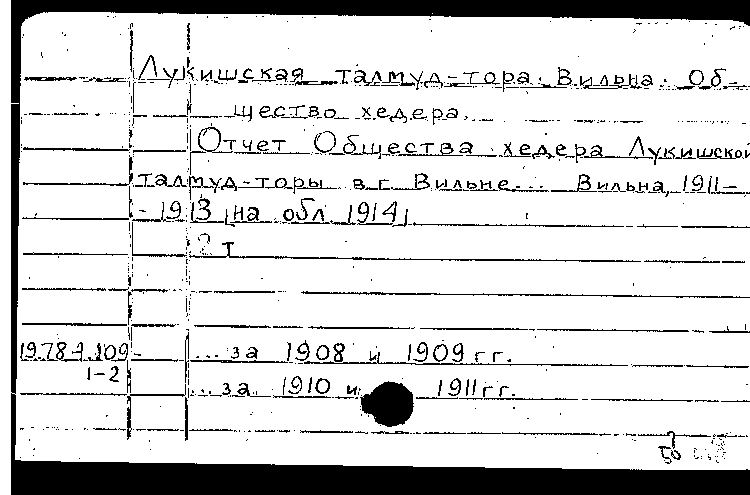 Лукишская талмуд-тора. Вильна. Об-
щество хедера.
Отчет Общества хедера Лукишской
талмуд-торы в г. Вильне... Вильна, 1911-
- 1913 [на обл. 1914].
2 т
... за 1908 и 1909 гг.
1-2
... за 1910 и 1911 гг.